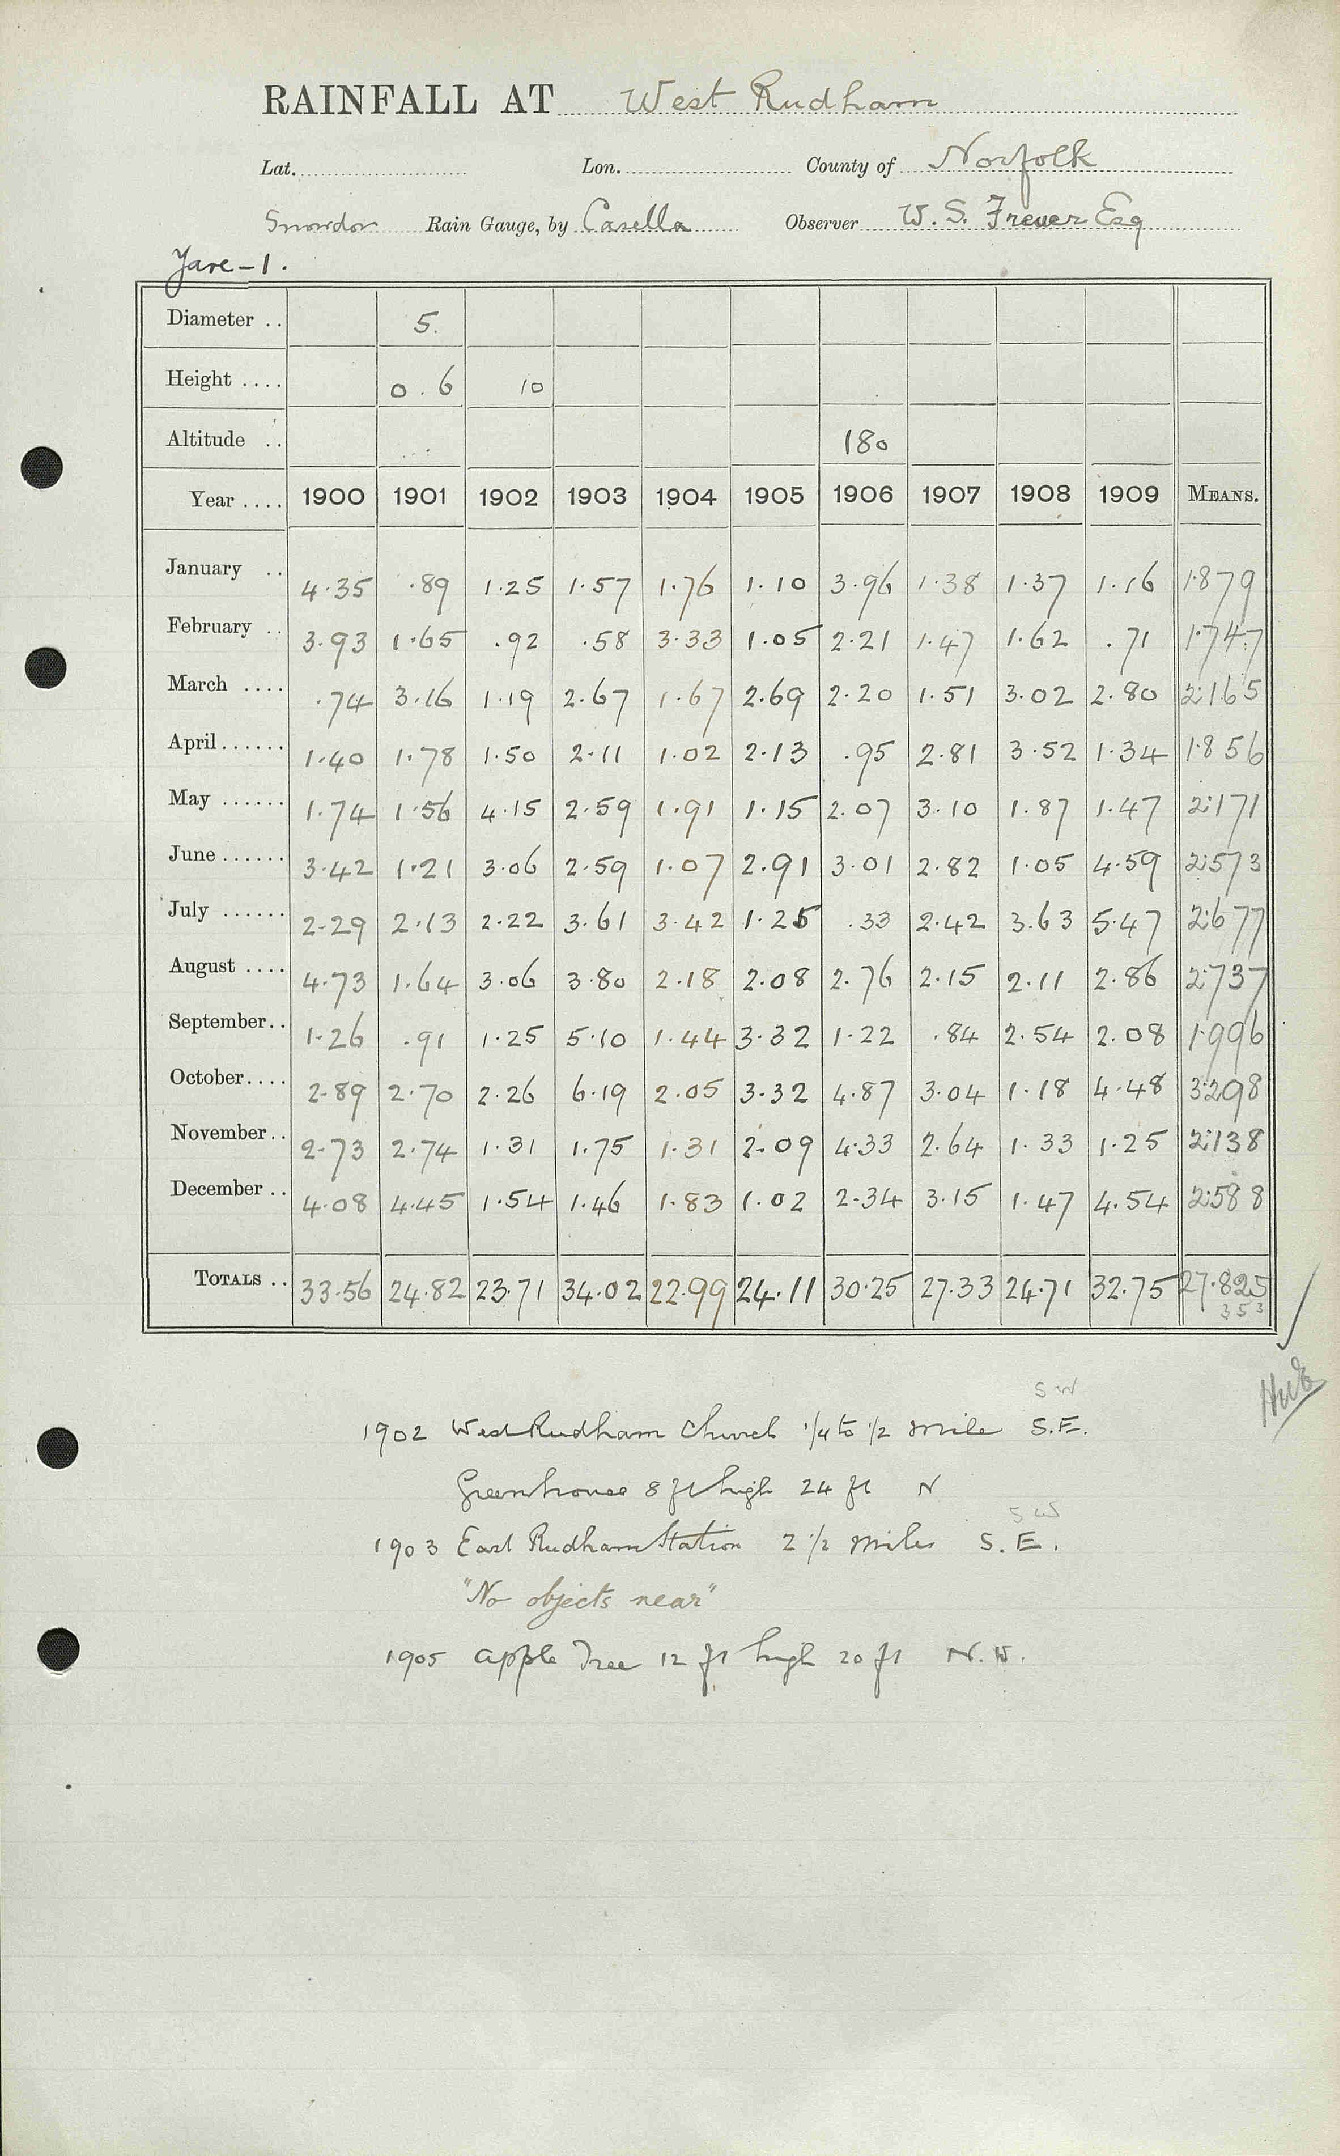 RAINFALL AT West Rudham
Lat. Lon. County of Norfolk
Snowdon Rain Gauge, by Casella Observer W. S. Frever Esq
Yare-1.
Diameter .. 5.
Height .... 0.6 10
Altitude .. 180
Year .... 1900 1901 1902 1903 1904 1905 1906 1907 1908 1909 MEANS.
January .. 4.35 .89 1.25 1.57 1.76 1.10 3.96 1.38 1.37 1.16 1.879
February .. 3.93 1.65 .92 .58 3.33 1.05 2.21 1.47 1.62 .71 1.747
March .... .74 3.16 1.19 2.67 1.67 2.69 2.20 1.51 3.02 2.80 2.165
April ...... 1.40 1.78 1.50 2.11 1.02 2.13 .95 2.81 3.52 1.34 1.856
May ...... 1.74 1.56 4.15 2.59 1.91 1.15 2.07 3.10 1.87 1.47 2.171
June ...... 3.42 1.21 3.06 2.59 1.07 2.91 3.01 2.82 1.05 4.59 2.573
July ...... 2.29 2.13 2.22 3.61 3.42 1.25 .33 2.42 3.63 5.47 2.677
August .... 4.73 1.64 3.06 3.80 2.18 2.08 2.76 2.15 2.11 2.86 2.737
September .. 1.26 .91 1.25 5.10 1.44 3.32 1.22 .84 2.54 2.08 1.996
October .... 2.89 2.70 2.26 6.19 2.05 3.32 4.87 3.04 1.18 4.48 3.298
November .. 2.73 2.74 1.31 1.75 1.31 2.09 4.33 2.64 1.33 1.25 2.138
December .. 4.08 4.45 1.54 1.46 1.83 1.02 2.34 3.15 1.47 4.54 2.588
TOTALS .. 33.56 24.82 23.71 34.02 22.99 24.11 30.25 27.33 24.71 32.75 27.825
353
SW
1902 West Rudham Church 1/4 to 1/2 mile S.E.
Greenhouse 8 ft high 24 ft N
SW
1903 East Rudham Station 2 1/2 miles S.E.
"No objects near"
1905 Apple Tree 12 ft high 20 ft N.W.